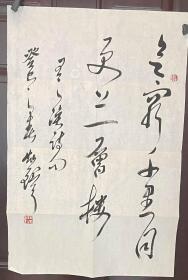 欲窮千里目
更上一層樓
王之渙詩句
癸巳之春